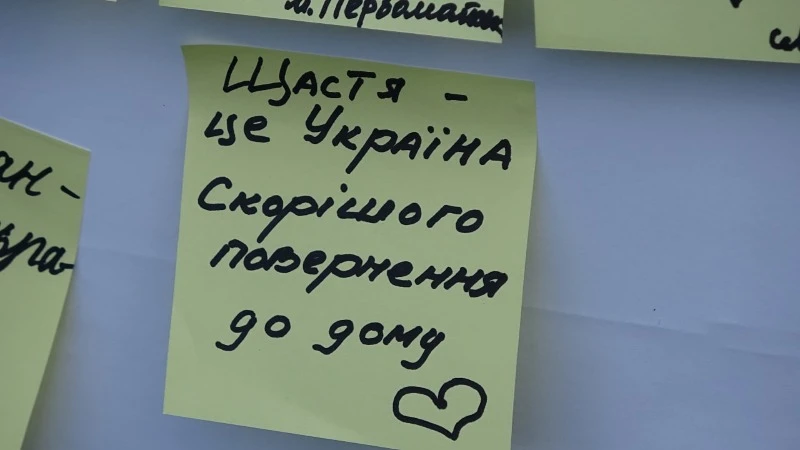 м. Первомайськ
Щастя -
це Україна
Скорішого
повернення
до дому
ан-